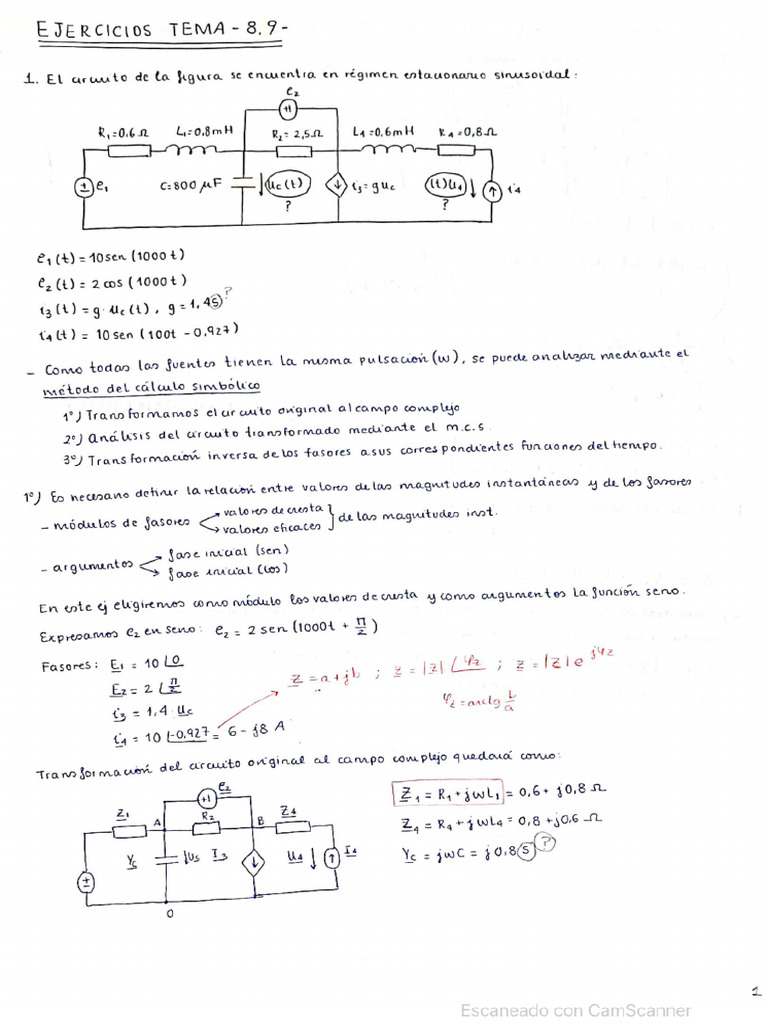 EJERCICIOS TEMA - 8.9 -
1. El circuito de la figura se encuentra en régimen estacionario sinusoidal:
e₂
R₁=0.6 Ω
L₁=0,8mH
R₂= 2,5Ω
L₄=0.6mH
R₄=0,8Ω
e₁
C=800 μF
uc(t)
?
i₃=guc
(t)u₄
?
i₄
e₁(t) = 10 sen (1000t)
e₂(t) = 2 cos (1000t)
i₃(t) = g·uc(t), g = 1.4S ?
i₄(t) = 10 sen (100t - 0.927)
- Como todas las fuentes tienen la misma pulsación (w), se puede analizar mediante el
método del cálculo simbólico
1º) Transformamos el circuito original al campo complejo
2º) análisis del circuito transformado mediante el m.c.s.
3º) Transformación inversa de los fasores a sus correspondientes funciones del tiempo.
1º) Es necesario definir la relación entre valores de las magnitudes instantáneas y de los fasores
- módulos de fasores
valores de cresta
valores eficaces
de las magnitudes inst.
- argumentos
fase inicial (sen)
fase inicial (cos)
En este ej eligiremos como módulo los valores de cresta y como argumentos la función seno.
Expresamos e₂ en seno: e₂ = 2 sen (1000t + π/2)
Fasores: E₁ = 10 ∠0
E₂ = 2 ∠π/2
i₃ = 1,4 · uc
i₄ = 10 ∠-0.927 = 6 - j8 A
z = a + jb ; z = |z| ∠φz ; z = |z| e^jφz
φz = arctg b/a
Transformación del circuito original al campo complejo quedará como:
e₂
Z₁
A
R₂
B
Z₄
Yc
Uc
I₃
U₄
I₄
0
Z₁ = R₁ + jwL₁ = 0,6 + j0,8 Ω
Z₄ = R₄ + jwL₄ = 0.8 + j0.6 Ω
Yc = jwC = j0.8 S ?
1
Escaneado con CamScanner